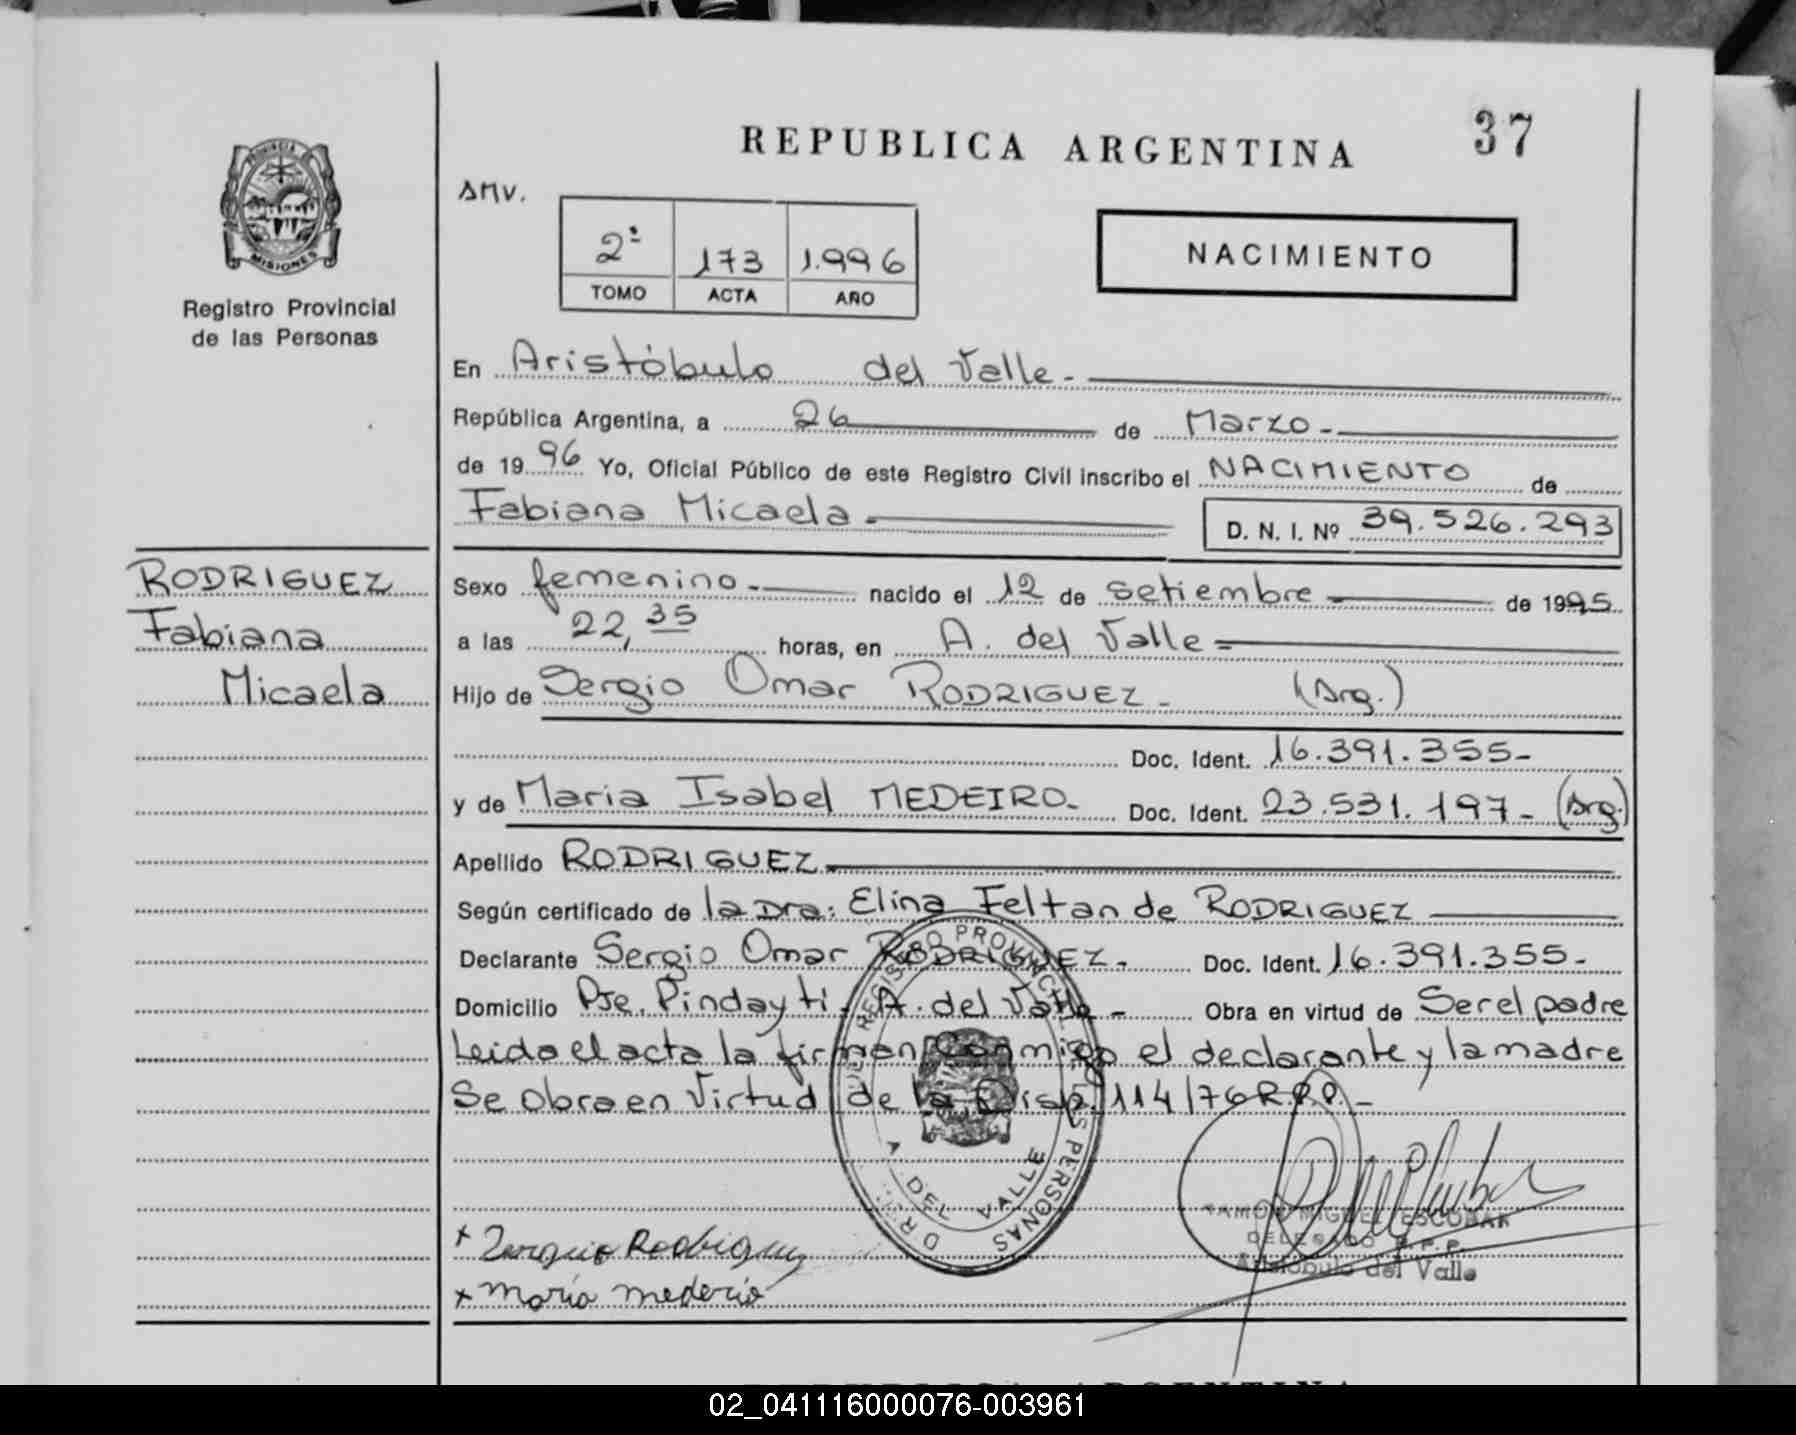 37
REPUBLICA ARGENTINA
PROVINCIA DE
MISIONES
Registro Provincial
de las Personas
AMV.
2º 173 1.996
TOMO ACTA AÑO
NACIMIENTO
En Aristóbulo del Valle-
República Argentina, a 26 de Marzo-
de 1996 Yo, Oficial Público de este Registro Civil inscribo el NACIMIENTO de
Fabiana Micaela- D. N. I. Nº 39.526.293
RODRIGUEZ
Fabiana
Micaela
Sexo femenino- nacido el 12 de setiembre de 1995
a las 22,35 horas, en A. del Valle
Hijo de Sergio Omar RODRIGUEZ- (Arg.)
Doc. Ident. 16.391.355-
y de Maria Isabel MEDEIRO- Doc. Ident. 23.531.197- (Arg.)
Apellido RODRIGUEZ
Según certificado de la Dra: Elina Feltan de RODRIGUEZ
Declarante Sergio Omar RODRIGUEZ. Doc. Ident. 16.391.355-
Domicilio Pje. Pindayti. A. del Valle- Obra en virtud de Ser el padre
Leida el acta la firman conmigo el declarante y la madre
Se obra en Virtud de la Disp. 114/76 R.P.P.-
REGISTRO PROVINCIAL DE LAS PERSONAS
A DEL VALLE
+ Sergio Rodriguez
+ María mederio
RAMON MIGUEL ESCOBAR
DELEGADO R.P.P.
Aristóbulo del Valle
REPUBLICA ARGENTINA
02_041116000076-003961